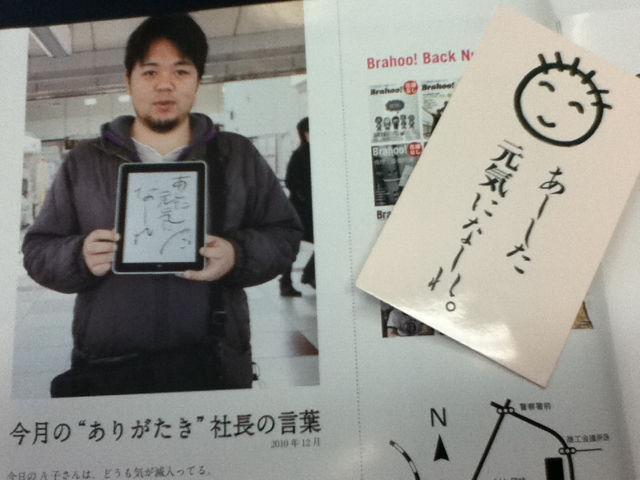 あした
元気に
なーれ
今月の“ありがたき”社長の言葉
2010年12月
今日のA子さんは、どうも気が滅入ってる。
Brahoo! Back N
Brahoo!
Brahoo!
あーした
元気になーれ。
N
警察署前
商工会議所